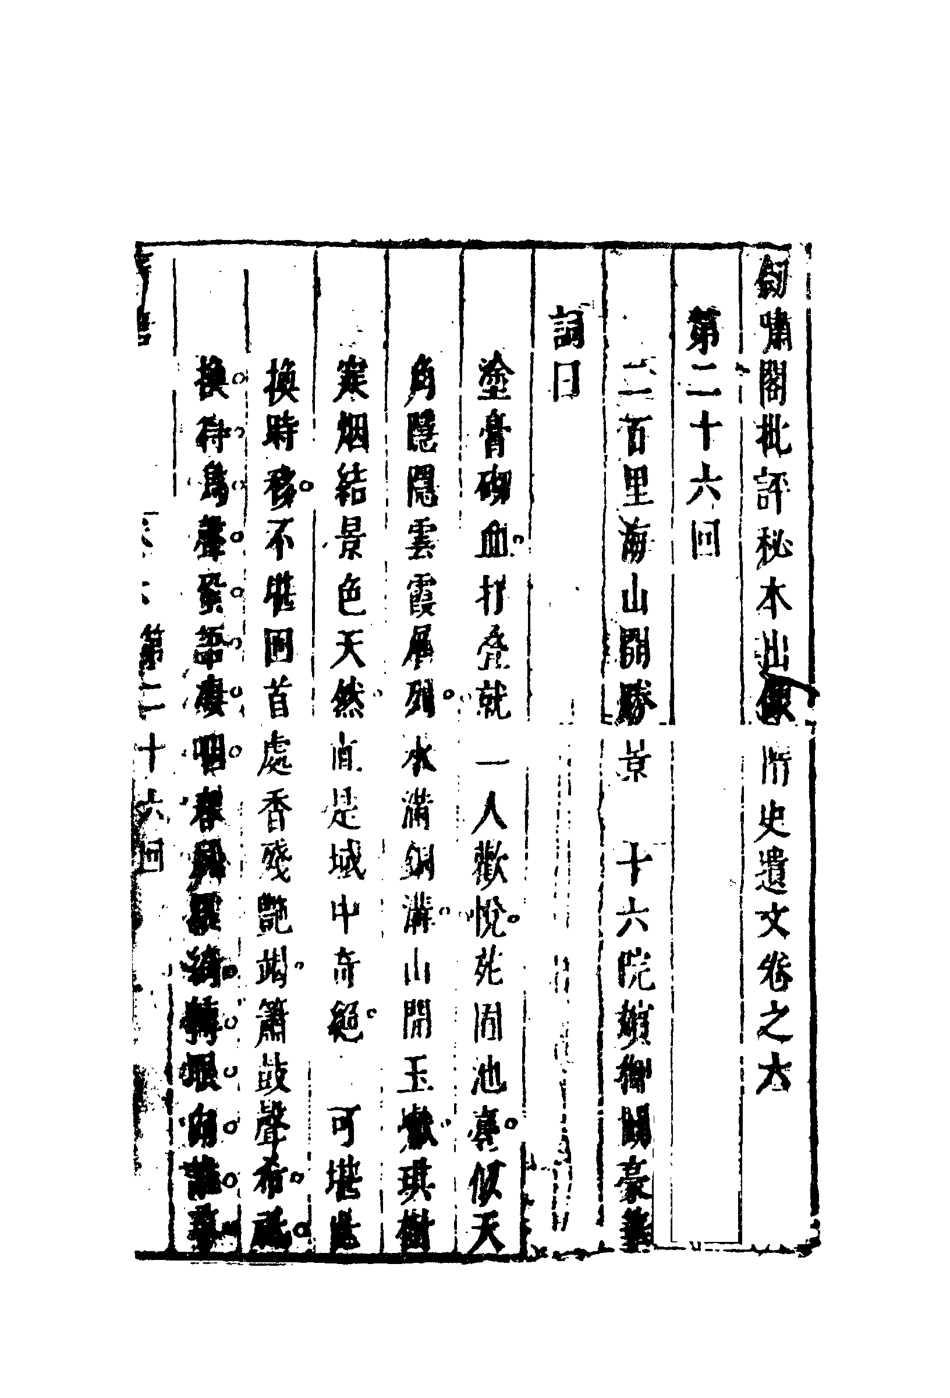 劍嘯閣批評秘本出像隋史遺文卷之六
第二十六回
二百里海山開勝景　十六院嬪御鬪豪華
詞曰
塗膏砌血打叠就一人歡悅苑囿池臺似天
角隱隱雲霞屏列水滿銅溝山開玉巘琪樹
寒烟結景色天然直是域中奇絕　可堪星
換時移不堪回首處香殘艷竭簫鼓聲希祇
換得鳥聲蛩語凄咽羅綺轉眼向誰
第二十六回